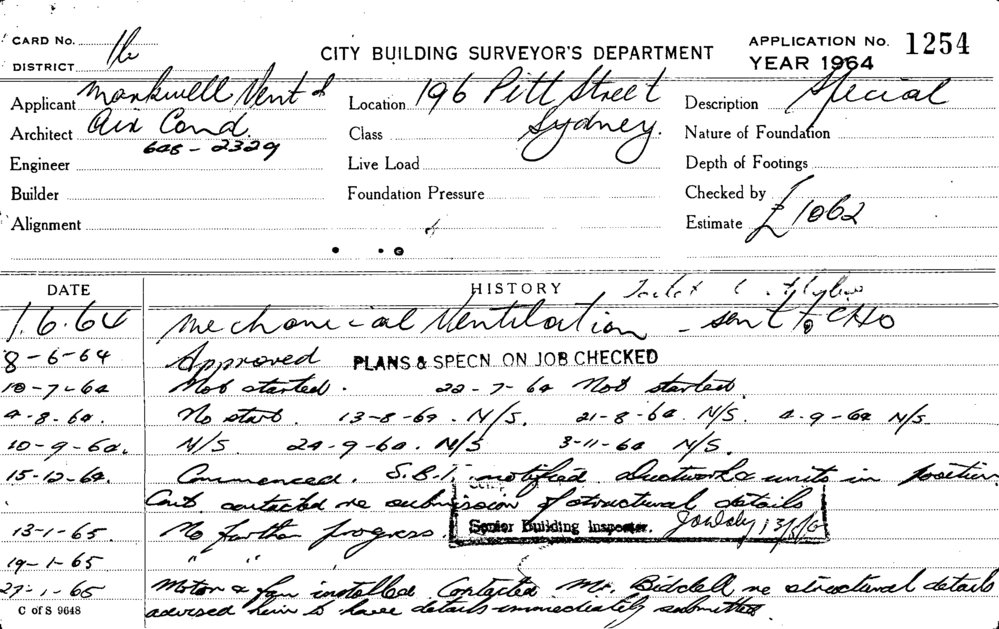 CARD No. 16
DISTRICT
CITY BUILDING SURVEYOR'S DEPARTMENT
APPLICATION No. 1254
YEAR 1964
Applicant Markwell Vent &
Architect Air Cond.
648-2329
Engineer
Builder
Alignment
Location 196 Pitt Street
Sydney.
Class
Live Load
Foundation Pressure
Description Special
Nature of Foundation
Depth of Footings
Checked by
Estimate £1062
DATE HISTORY
1.6.64 Mechanical Ventilation - sent to CHO
8-6-64 Approved PLANS & SPECN. ON JOB CHECKED
10-7-64 Not started. 22-7-64 Not started
4-8-64. No start. 13-8-64. N/S. 21-8-64. N/S. 4-9-64 N/S.
10-9-64. N/S. 24-9-64. N/S 3-11-64 N/S.
15-12-64. Commenced. S.B.I. notified ductwork & units in position
Cont. contacted re submission of structural details
13-1-65. No further progress. Senior Building Inspector.
19-1-65 " " "
27-1-65 Motor & fan installed Contacted Mr. Biddell re structural details
C of S 9648 advised him to have details immediately submitted